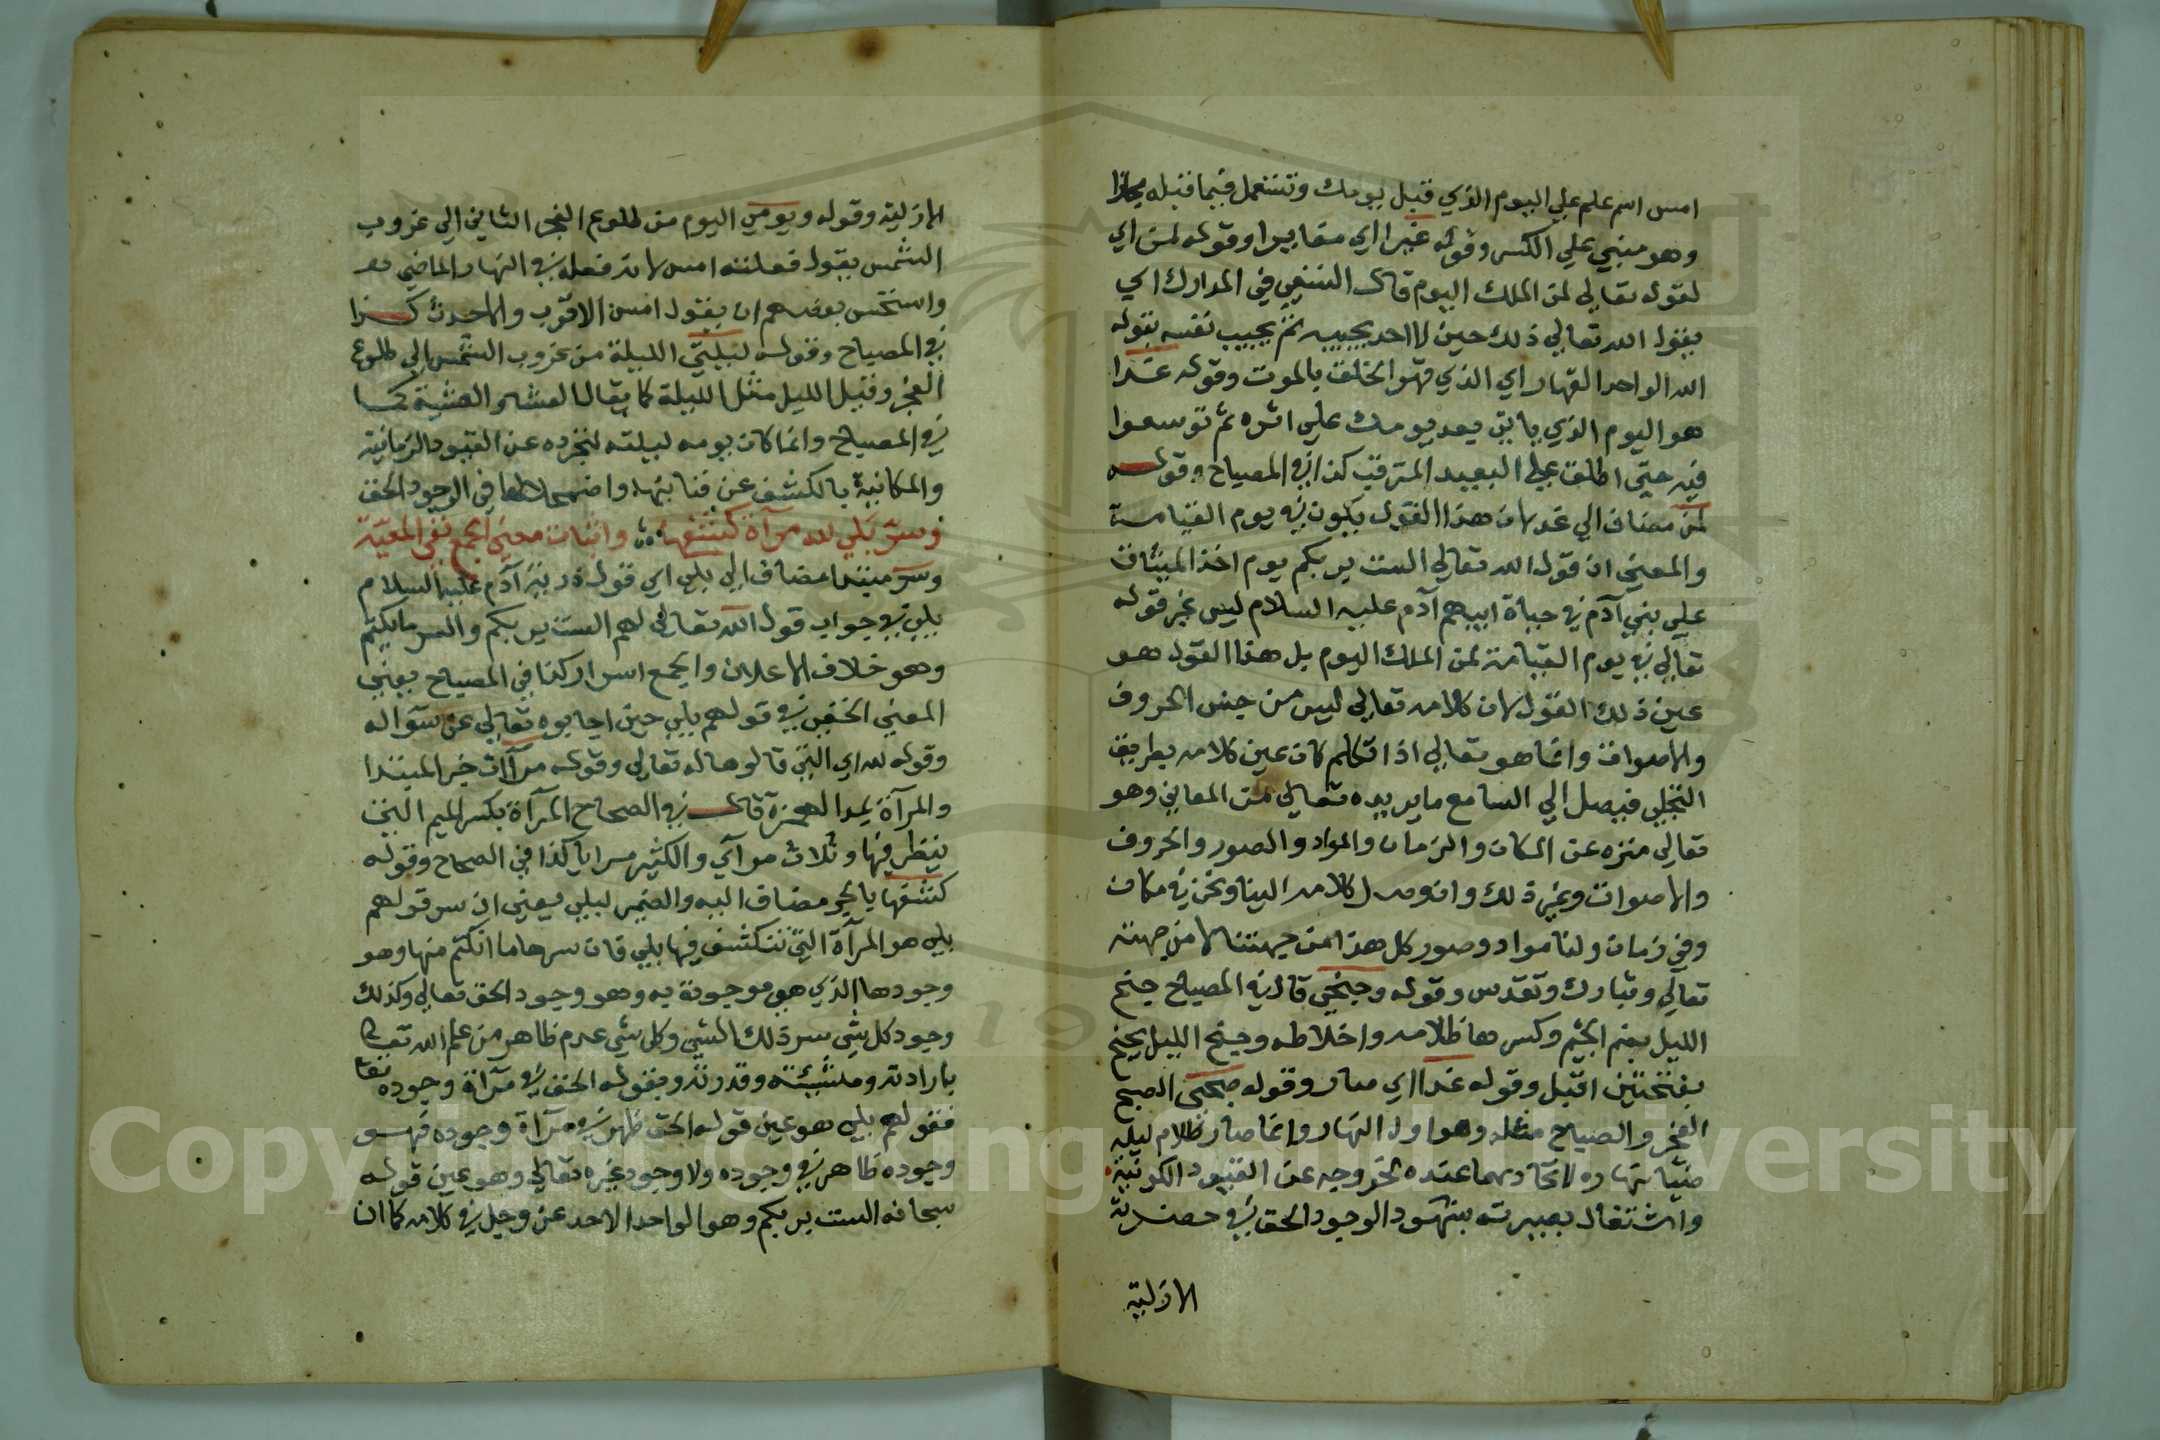 امس اسم علم علي اليوم الذي قبل يومك وتستعمل فيما قبله مجازا
وهو مبني علي الكسر وقوله غبرا اي مقابرا وقوله لمن اي
لقوله تعالي لمن الملك اليوم قال النسفي في المدارك اي
يقول الله تعالي ذلك حين لا احد يجيبه ثم يجيب نفسه بقوله
الله الواحد القهار اي الذي قهر الخلق بالموت وقوله غدا
هو اليوم الذي ياتي بعد يومك علي اثره ثم توسعوا
فيه حتي اطلق علي البعيد المترقب كذا في المصباح وقوله
لمن مضاف الي غد لان هذا القول يكون في يوم القيامة
والمعني ان قول الله تعالي الست بربكم يوم اخذ الميثاق
علي بني آدم في حياة ابيهم آدم عليه السلام ليس غير قوله
تعالي في يوم القيامة لمن الملك اليوم بل هذا القول هو
عين ذلك القول لان كلامه تعالي ليس من جنس الحروف
والاصوات وانما هو تعالي اذا تكلم كان عين كلامه بطريق
التجلي فيصل الي السامع ما يريده تعالي من المعاني وهو
تعالي منزه عن المكان والزمان والمواد والصور والحروف
والاصوات وغير ذلك وان وصل كلامه الينا ونحن في مكان
وفي زمان ولنا مواد وصور كل هذا من جهتنا لا من جهته
تعالي وتبارك وتقدس وقوله وجنحي قال في المصباح جنح
الليل بضم الجيم وكسرها ظلامه واختلاطه وجنح الليل يجنح
بفتحتين اقبل وقوله غدا اي صار وقوله صبحي الصبح
الفجر والصباح مثله وهو اول النهار وانما صار ظلام ليله
ضياء نهاره لاتحادهما عنده لخروجه عن القيود الكونية
واشتغال بصيرته بشهود الوجود الحق في حضرته
الازلية
الازلية وقوله ويومي اليوم من طلوع الفجر الثاني الي غروب
الشمس يقول فعلته امس لانه فعله في النهار الماضي
واستحسن بعضهم ان يقول امس الاقرب والاحدث كذا
في المصباح وقوله ليلتي الليلة من غروب الشمس الي طلوع
الفجر وقيل الليل مثل الليلة كما يقال العشي والعشية كما
في المصباح وانما كان يومه ليلته لتجرده عن القيود الزمانية
والمكانية بالكشف عن فنائها واضمحلالها في الوجود الحق
وسر بلي لله مرآة كشفها واثبات معني الجمع نفي المعية
وسر مبتدا مضاف الي بلي اي قول ذرية آدم عليه السلام
بلي في جواب قول الله تعالي لهم الست بربكم والسر ما يكتم
وهو خلاف الاعلان والجمع اسرار كذا في المصباح يعني
المعني الخفي في قولهم بلي حين اجابوه تعالي عن سؤاله
وقوله لله اي التي قالوها له تعالي وقوله مرآة خبر المبتدا
والمرآة بمد الهمزة قال في الصحاح المرآة بكسر الميم التي
ينظر فيها وثلاث مرآي والكثير مرايا كذا في الصحاح وقوله
كشفها بالجر مضاف اليه والضمير لبلي يعني ان سر قولهم
بلي هو المرآة التي تنكشف فيها بلي فان سرها ما انكتم منها وهو
وجودها الذي هي موجودة به وهو وجود الحق تعالي وكذلك
وجود كل شي سر ذلك الشي وكل شي عدم ظاهر من علم الله تعالي
بارادته ومشيئته وقدرته وبقوله الحق في مرآة وجوده تعالي
فقولهم بلي هو عين قوله الحق ظهر في مرآة وجوده فهو
وجوده ظاهر في وجوده ولا وجود غيره تعالي وهو عين قوله
سبحانه الست بربكم وهو الواحد الاحد عز وجل في كلامه كما ان
Copyright © King Saud University